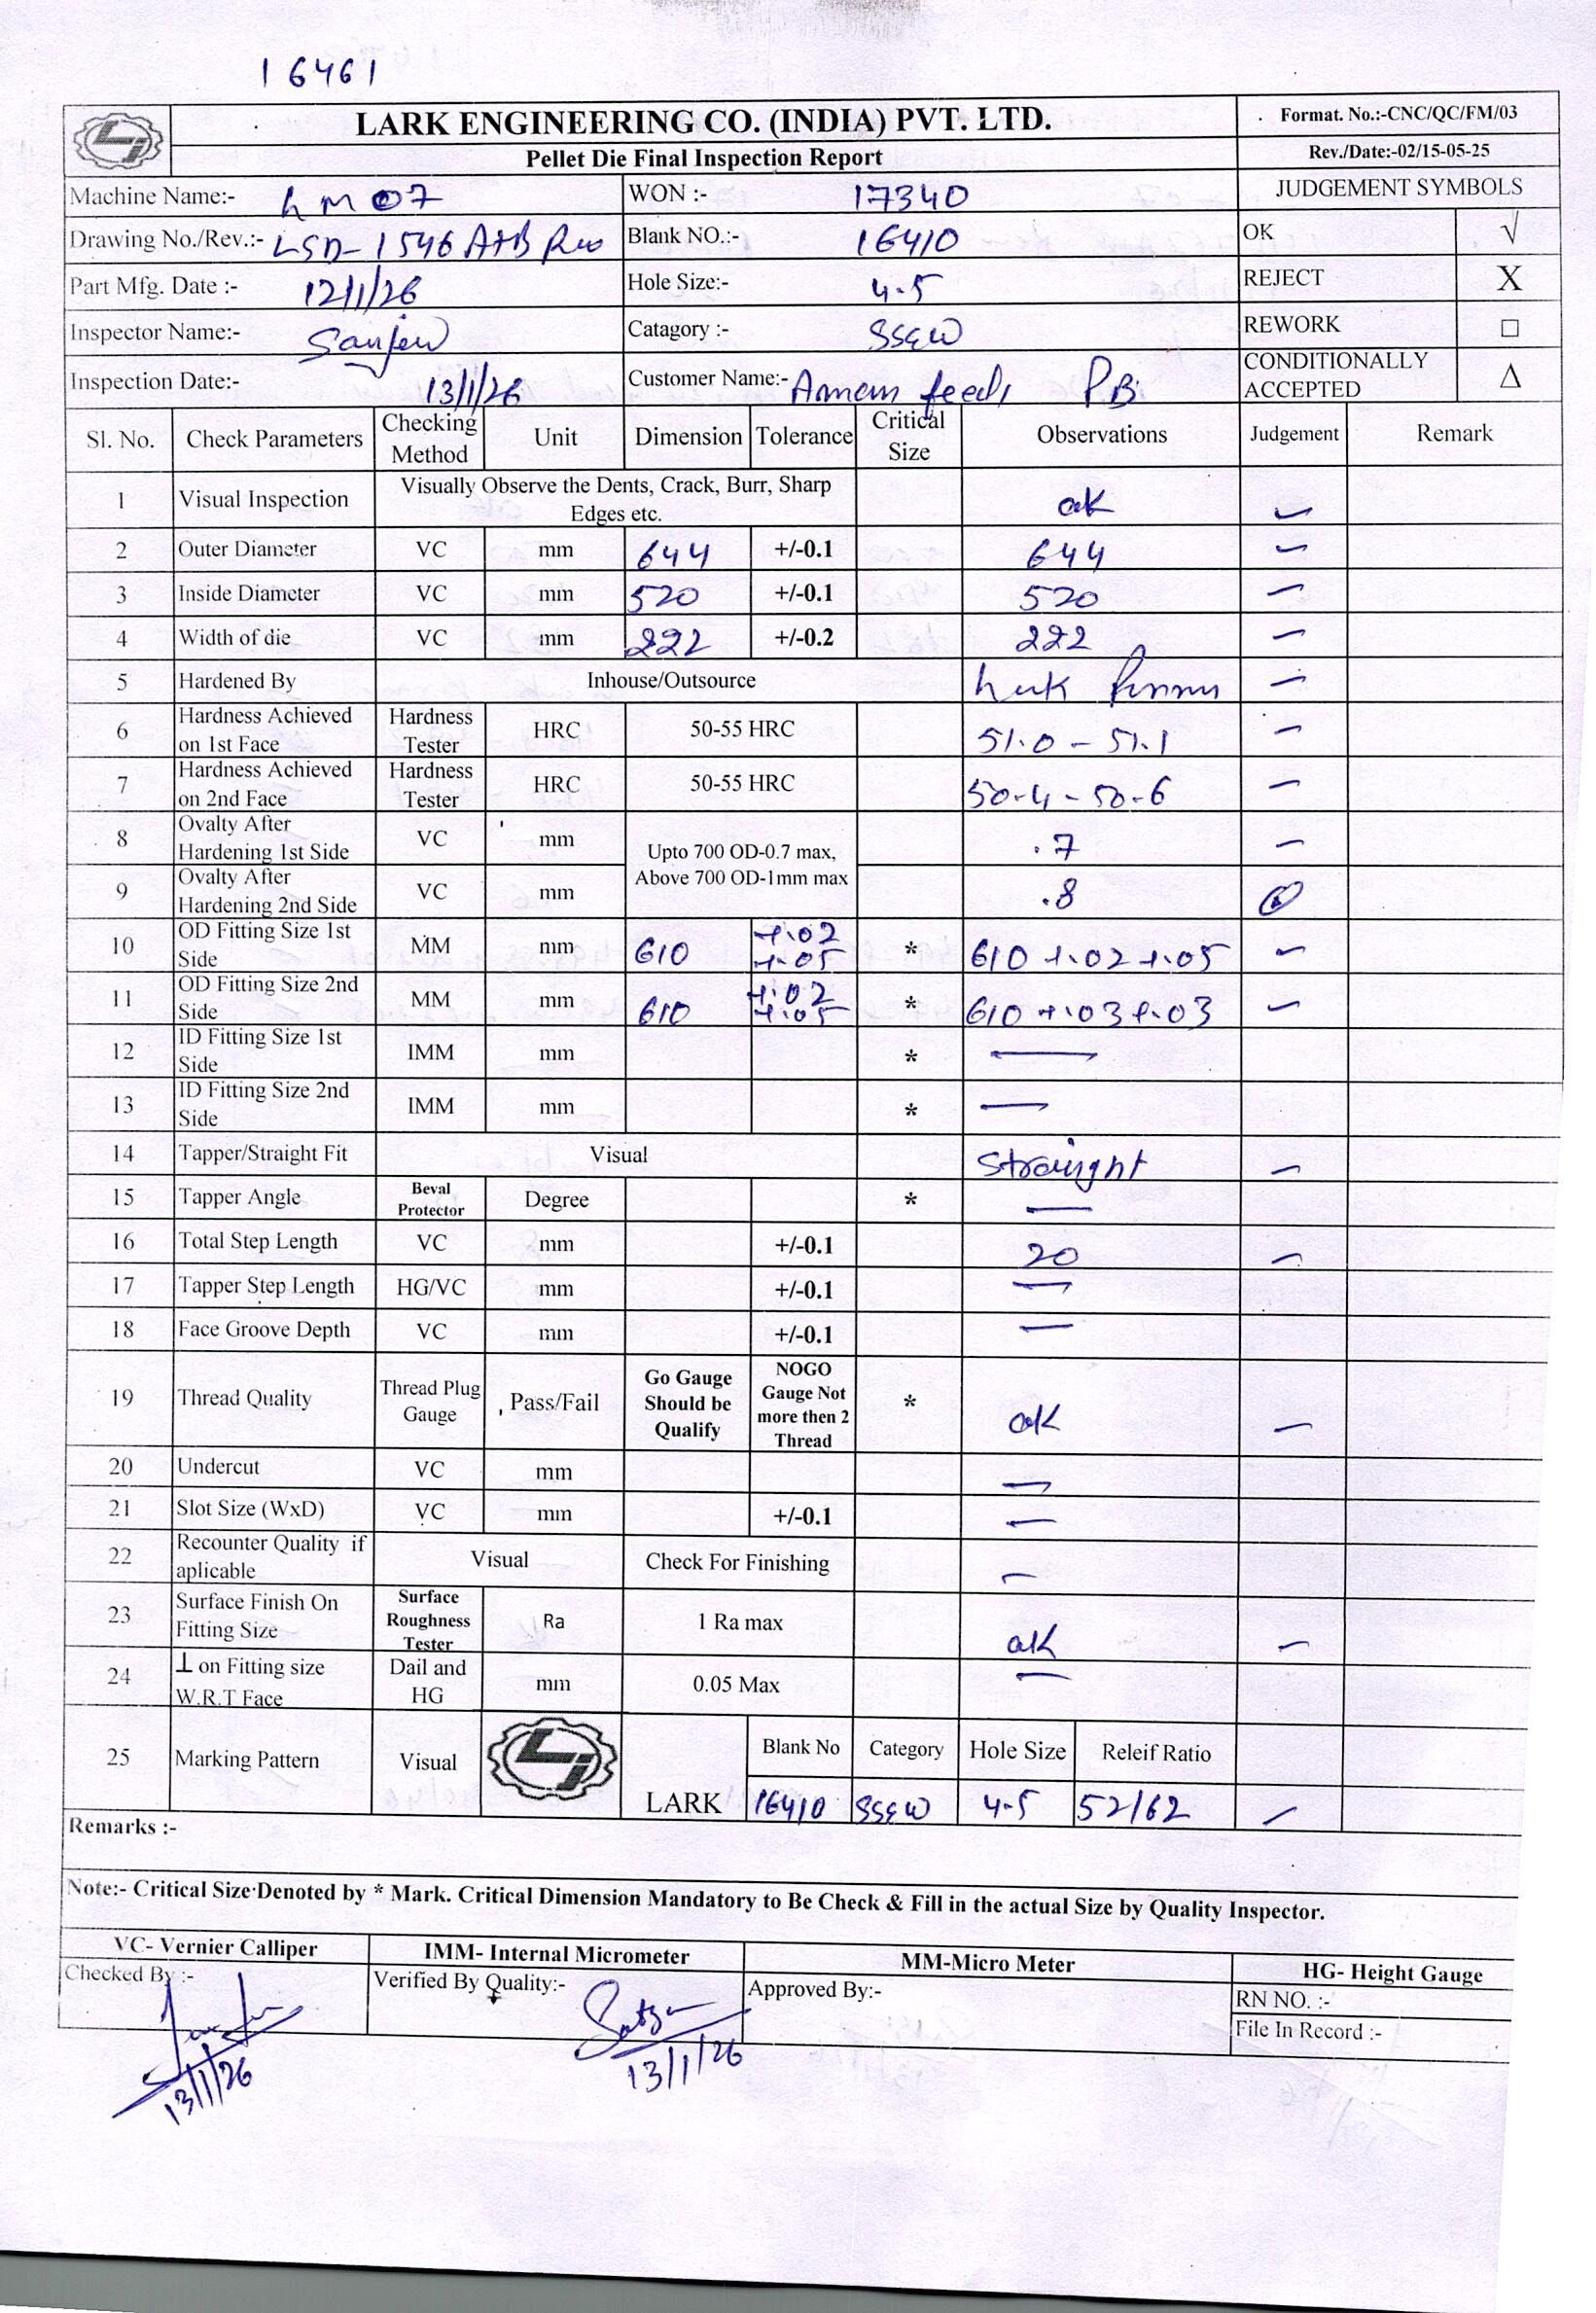 16461
LARK ENGINEERING CO. (INDIA) PVT. LTD.
Format. No.:-CNC/QC/FM/03
Pellet Die Final Inspection Report
Rev./Date:-02/15-05-25
Machine Name:- LM 07 WON :- 17340 JUDGEMENT SYMBOLS
Drawing No./Rev.:- LSD-1546 A+B Blank NO.:- 16410 OK √
Part Mfg. Date :- 12/1/26 Hole Size:- 4.5 REJECT X
Inspector Name:- Sanjeev Catagory :- SSEW REWORK □
Inspection Date:- 13/1/26 Customer Name:- Aman feeds PB CONDITIONALLY ACCEPTED Δ
Sl. No. Check Parameters Checking Method Unit Dimension Tolerance Critical Size Observations Judgement Remark
1 Visual Inspection Visually Observe the Dents, Crack, Burr, Sharp Edges etc. ok
2 Outer Diameter VC mm 644 +/-0.1 644
3 Inside Diameter VC mm 520 +/-0.1 520
4 Width of die VC mm 222 +/-0.2 222
5 Hardened By Inhouse/Outsource
6 Hardness Achieved on 1st Face Hardness Tester HRC 50-55 HRC 51.0 - 51.1
7 Hardness Achieved on 2nd Face Hardness Tester HRC 50-55 HRC 50.4 - 50.6
8 Ovalty After Hardening 1st Side VC mm Upto 700 OD-0.7 max, Above 700 OD-1mm max .7
9 Ovalty After Hardening 2nd Side VC mm .8
10 OD Fitting Size 1st Side MM mm 610 +.02 +.05 * 610 +.02 +.05
11 OD Fitting Size 2nd Side MM mm 610 +.02 +.05 * 610 +.03 +.03
12 ID Fitting Size 1st Side IMM mm * —
13 ID Fitting Size 2nd Side IMM mm * —
14 Tapper/Straight Fit Visual Straight
15 Tapper Angle Beval Protector Degree * —
16 Total Step Length VC mm +/-0.1 20
17 Tapper Step Length HG/VC mm +/-0.1 —
18 Face Groove Depth VC mm +/-0.1 —
19 Thread Quality Thread Plug Gauge Pass/Fail Go Gauge Should be Qualify NOGO Gauge Not more then 2 Thread * ok
20 Undercut VC mm —
21 Slot Size (WxD) VC mm +/-0.1 —
22 Recounter Quality if aplicable Visual Check For Finishing —
23 Surface Finish On Fitting Size Surface Roughness Tester Ra 1 Ra max ok
24 ⊥ on Fitting size W.R.T Face Dail and HG mm 0.05 Max —
25 Marking Pattern Visual LARK Blank No Category Hole Size Releif Ratio
16410 SSEW 4.5 52/62
Remarks :-
Note:- Critical Size Denoted by * Mark. Critical Dimension Mandatory to Be Check & Fill in the actual Size by Quality Inspector.
VC- Vernier Calliper IMM- Internal Micrometer MM-Micro Meter HG- Height Gauge
Checked By :- Verified By Quality:- Approved By:- RN NO. :-
File In Record :-
13/1/26 13/1/26